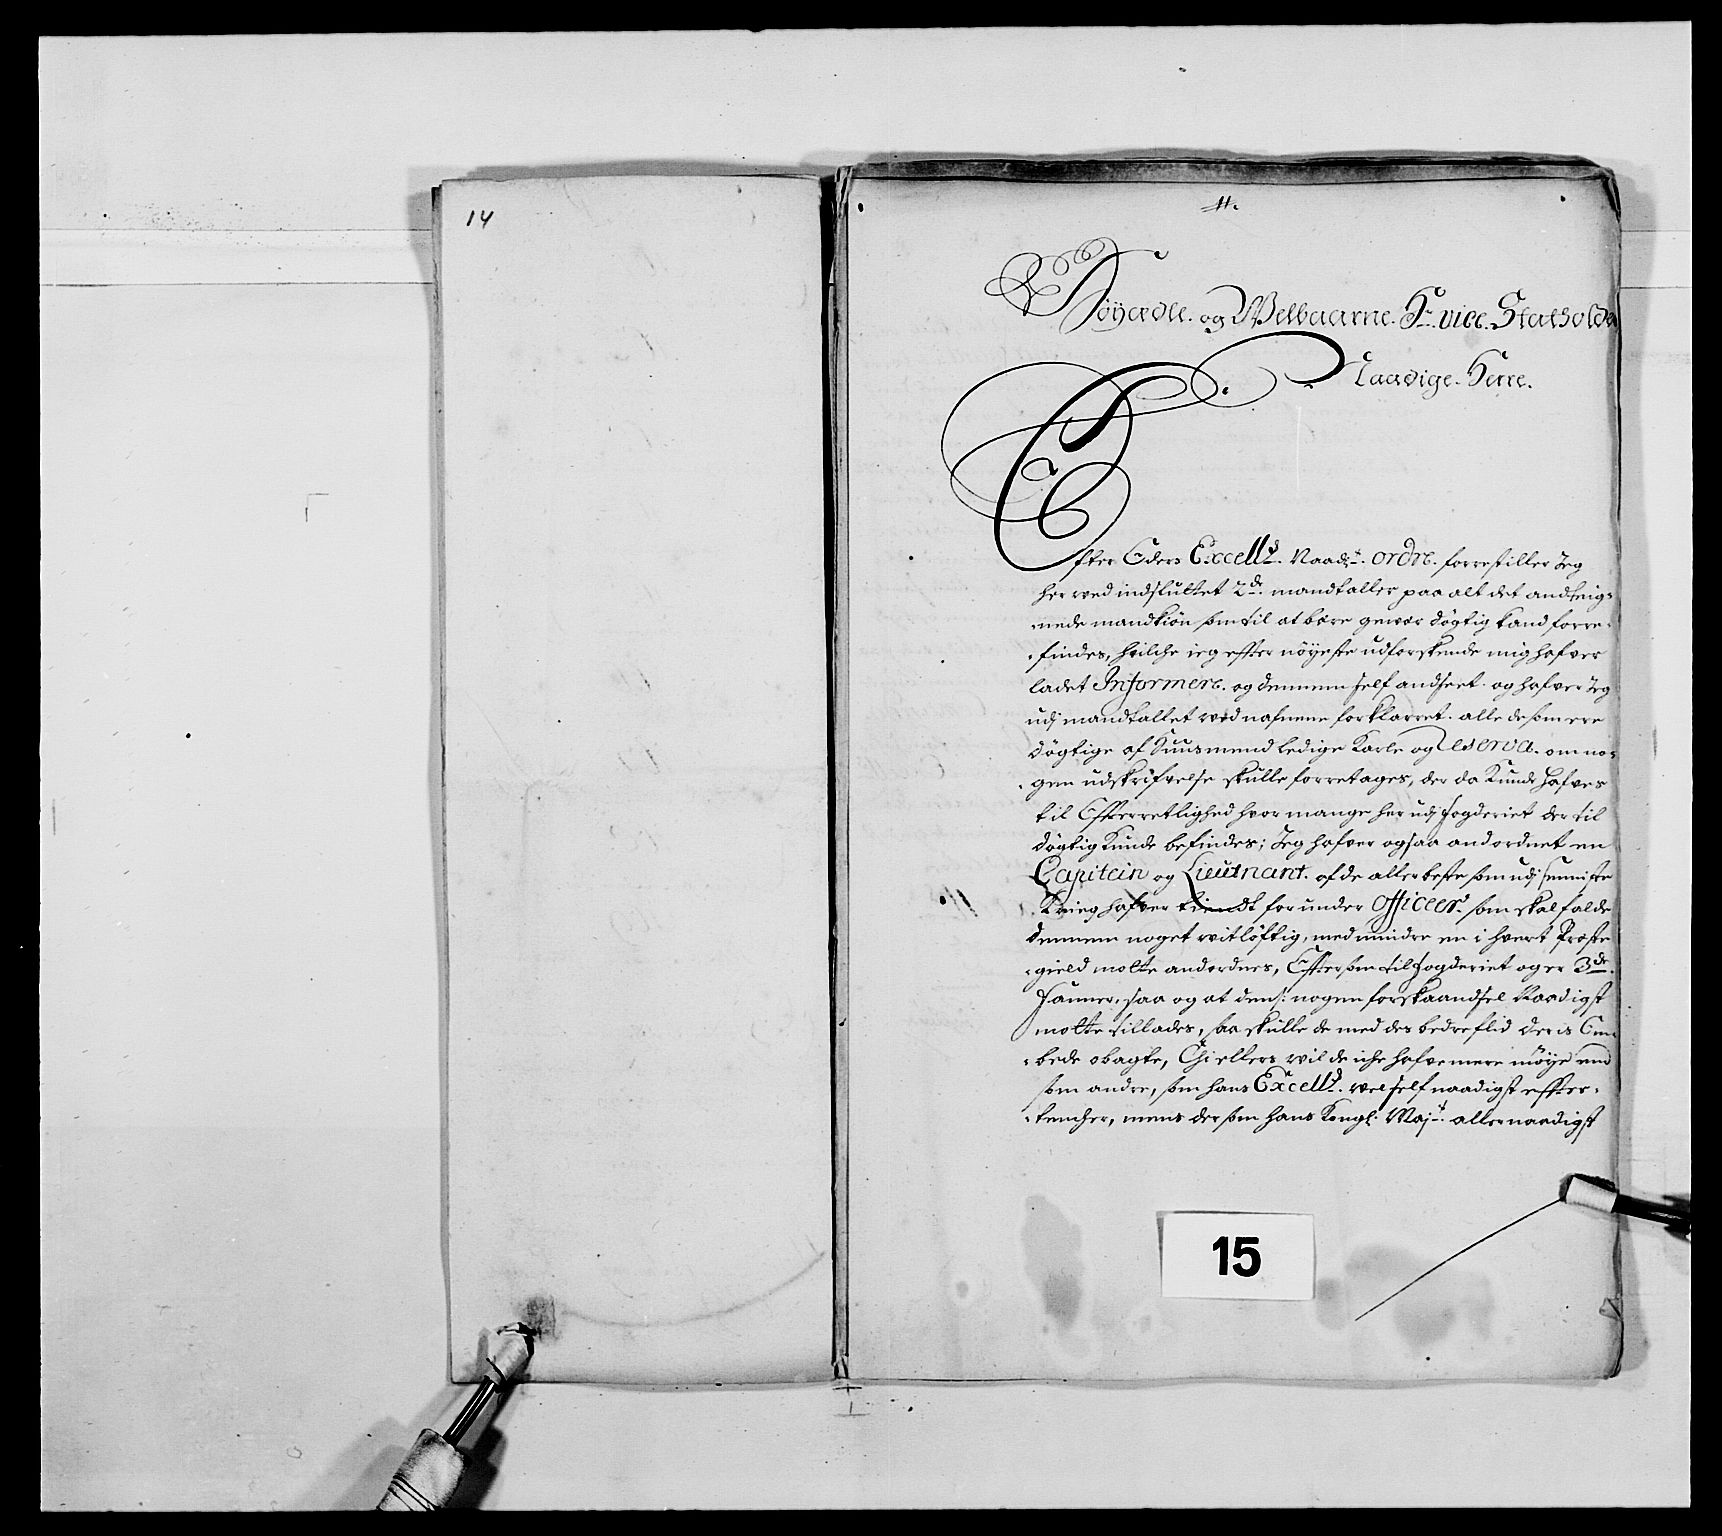 14
11.
Höyædle. og Welbaarne. Hr. vice. Statholder
Naadige. Herre.
Efter Eders Excell:ds Naadst. ordre. forrestiller Jeg
her wed indsluttet 2de. mandtaller paa alt det
mede mandkiön som til at bære gewær dögtig kand forre-
findes, hvilche ieg effter nöyeste udforskende mig hafver
ladet Informere. og dennem self andseet. og hafver Jeg
udj mandtallet wed nafnene forklarret. alle de som ere
dögtige af Huusmend ledige Karle og Reserva. om no-
gen udskrifvelse skulle forretages, der da Kunde hafves
til Effterretlighed hvor mange her udj fogderiet der til
dögtig Kunde befindes; Jeg hafver ogsaa andordnet en
Capitein og Lieutnant. af de aller beste som udj seeniste
Krieg hafver tiendt for under officeer. som skal falde
dennem noget witlöftig, med mindre en i hvert Præste
gield motte andordnes, Effter som til fogderiet og er 3de.
, saa og at dens: nogen forskaandsel Naadigst
motte tillades, saa skulle de med des bedre flid deris Em-
bede obagte, Thi ellers wil de iche hafve mere möye end
som andre, som hans Excell:d. wel self naadigst effter-
tencher, mens der som hans Kongl: Maj:t. allernaadigst
15